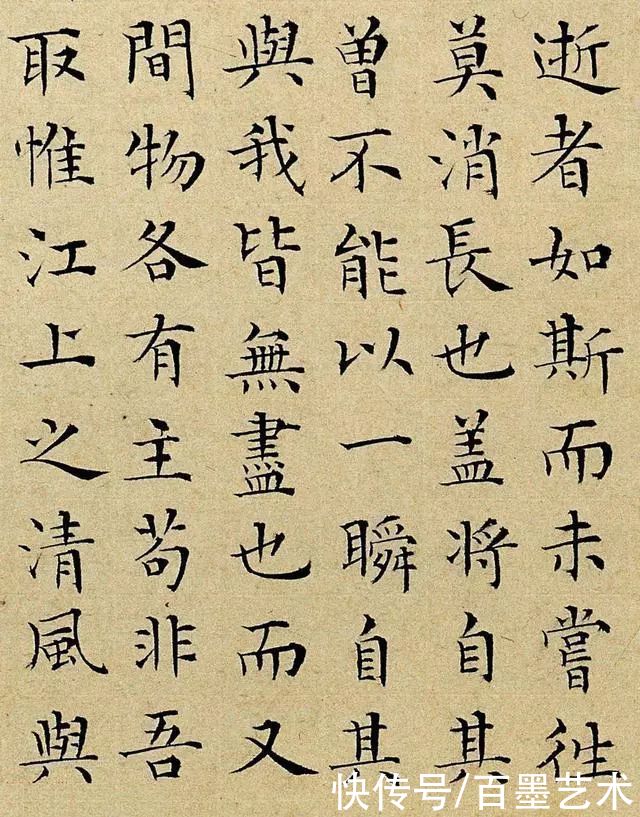 逝者如斯而未嘗往
莫消長也盖将自其
曽不能以一瞬自其
與我皆無盡也而又
間物各有主苟非吾
取惟江上之清風與
快传号/百墨艺术